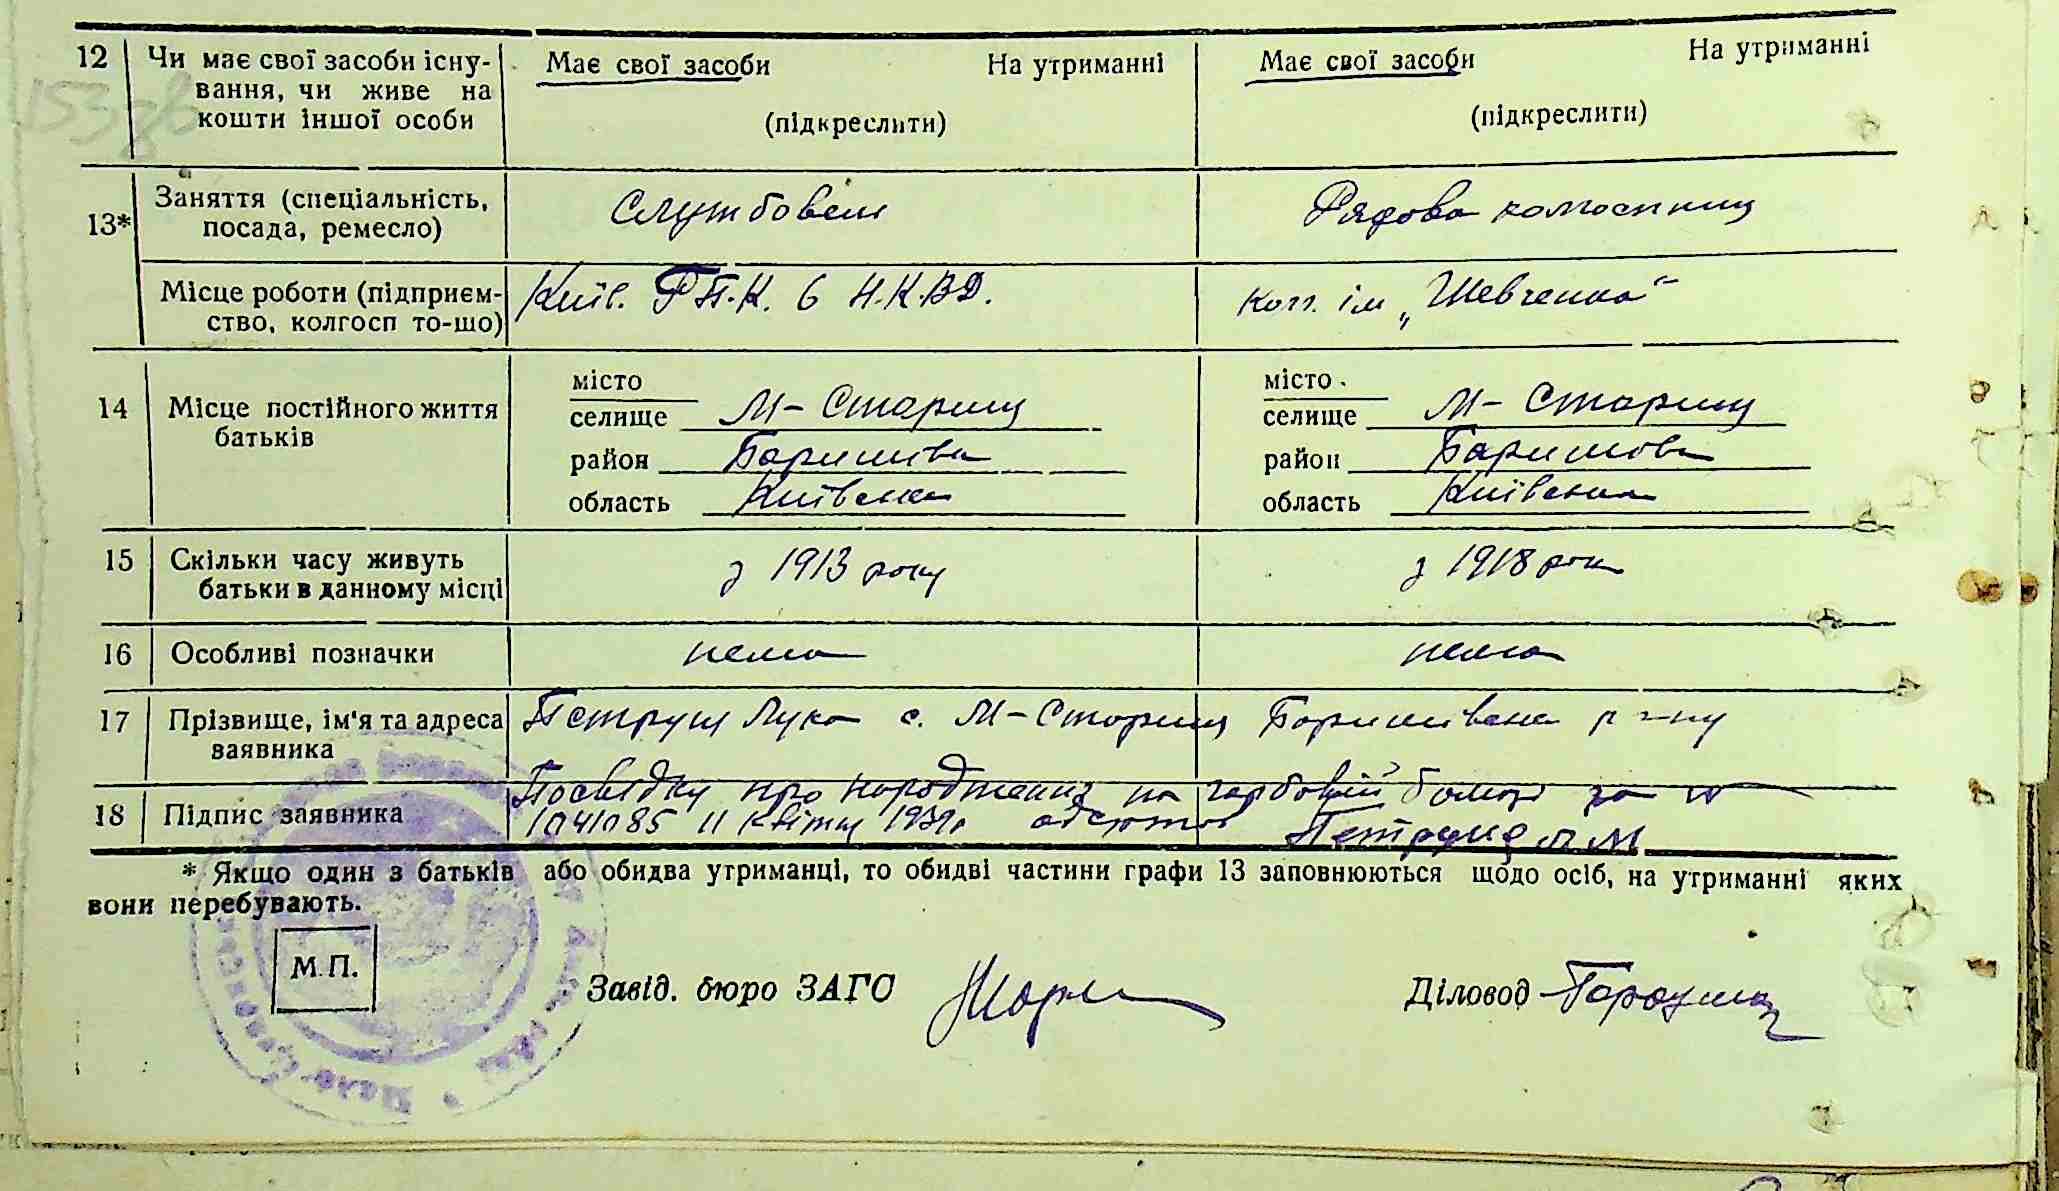 12 Чи має свої засоби існу- Має свої засоби На утриманні Має свої засоби На утриманні
вання, чи живе на
кошти іншої особи (підкреслити) (підкреслити)
13* Заняття (спеціальність, Службовець Рядова колгоспниц
посада, ремесло)
Місце роботи (підприєм- Київ. Н.К.В.Д. Колг. ім „Шевченка“
ство, колгосп то-що)
14 Місце постійного життя місто місто
батьків селище М-Стариц селище М-Стариц
район Баришівка район Баришівка
область Київська область Київська
15 Скільки часу живуть з 1913 року з 1918 рок
батьки в данному місці
16 Особливі позначки нема нема
17 Прізвище, ім'я та адреса Петруш Лука с. М-Стариц Баришівськ р-ну
заявника
Посвідку про народження на гербовій за
18 Підпис заявника 11 квітня 1939р
* Якщо один з батьків або обидва утриманці, то обидві частини графи 13 заповнюються щодо осіб, на утриманні яких
вони перебувають.
М.П.
Завід. бюро ЗАГС Діловод